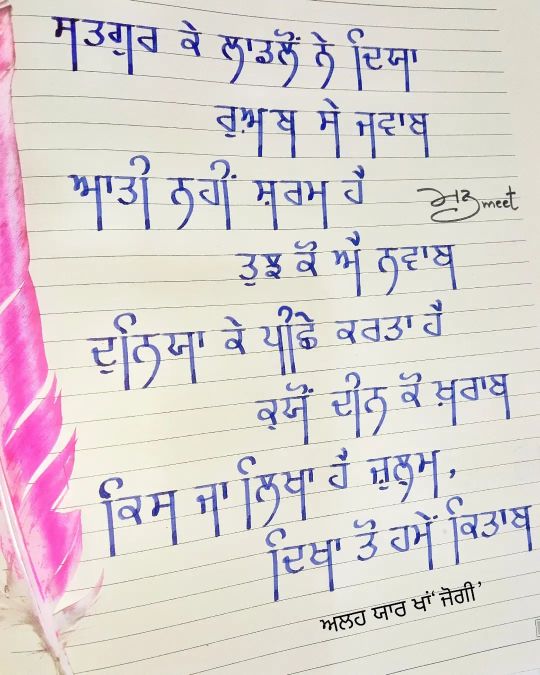 ਸਤਗੁਰ ਕੇ ਲਾਡਲੋਂ ਨੇ ਦਿਯਾ
ਰੁਅਬ ਸੇ ਜਵਾਬ
ਆਤੀ ਨਹੀਂ ਸ਼ਰਮ ਹੈ
meet
ਤੁਝ ਕੋ ਐ ਨਵਾਬ
ਦੁਨਿਯਾ ਕੇ ਪੀਛੇ ਕਰਤਾ ਹੈ
ਕਯੋਂ ਦੀਨ ਕੋ ਖ਼ਰਾਬ
ਕਿਸ ਜਾ ਲਿਖਾ ਹੈ ਜ਼ੁਲਮ,
ਦਿਖਾ ਤੋ ਹਮੇਂ ਕਿਤਾਬ
ਅਲਹ ਯਾਰ ਖਾਂ ‘ਜੋਗੀ’